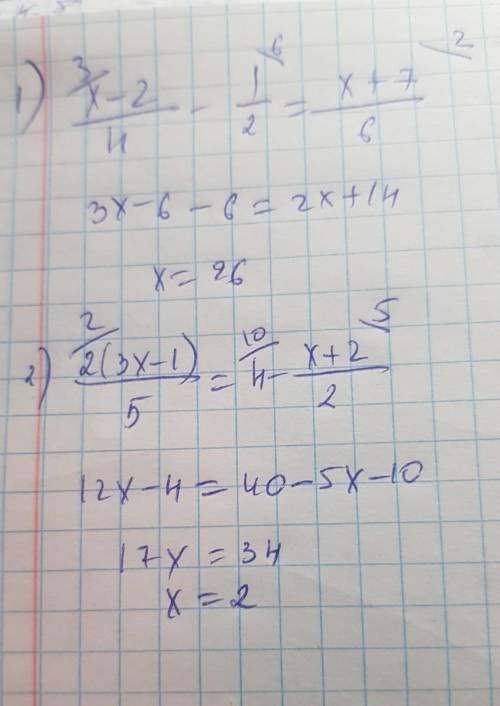 1) 3/ (x-2)/4 - 1/2 /6 = (x+7)/6 /2
3x-6-6=2x+14
x=26
2) 2/ 2(3x-1)/5 = 10/ 4- (x+2)/2 /5
12x-4=40-5x-10
17x=34
x=2